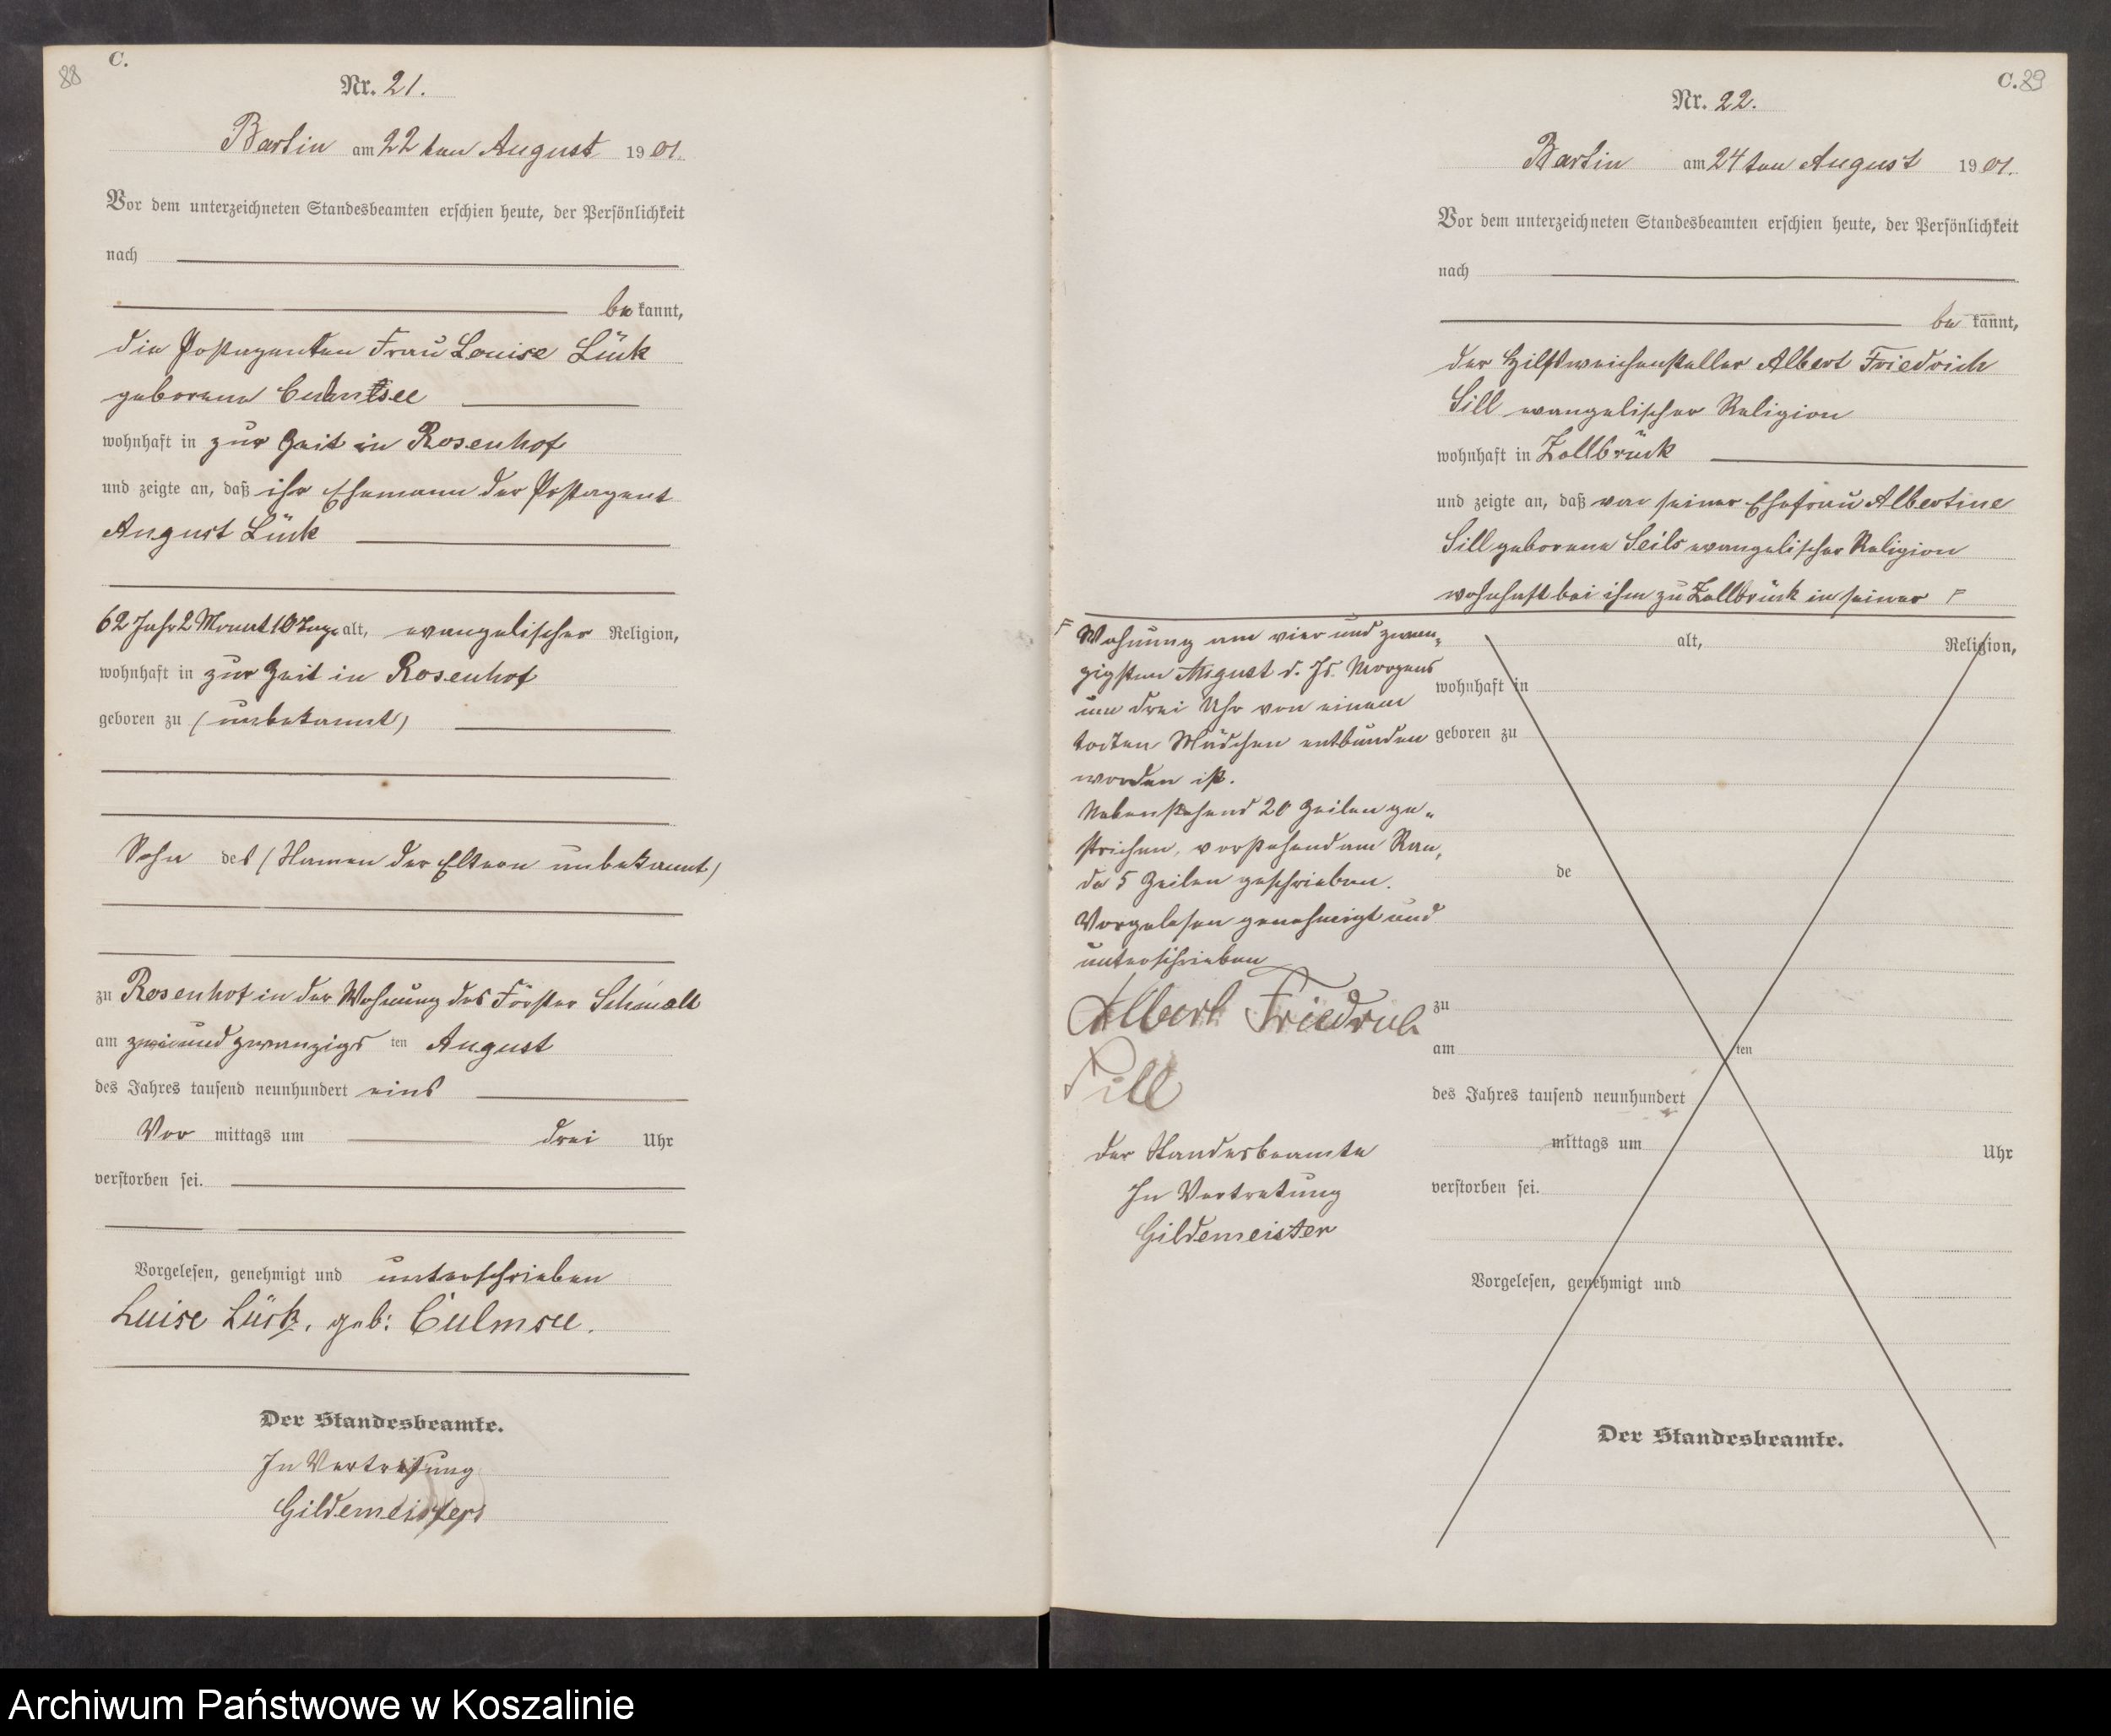 88
C.
Nr. 21.
Bartin am 22ten August 1901.
Vor dem unterzeichneten Standesbeamten erschien heute, der Persönlichkeit
nach
bekannt,
die Postagenten Frau Louise Lück
geborene
wohnhaft in zur Zeit in Rosenhof
und zeigte an, daß ihr Ehemann der Postagent
August Lück
62 Jahr 2 Monat 10 Tage alt, evangelischer Religion,
wohnhaft in zur Zeit in Rosenhof
geboren zu (unbekannt)
Sohn des (Namen der Eltern unbekannt)
zu Rosenhof in der Wohnung des Förster
am zweiundzwanzigsten August
des Jahres tausend neunhundert eins
Vormittags um drei Uhr
verstorben sei.
Vorgelesen, genehmigt und unterschrieben
Luise Lück, geb: Culmsee.
Der Standesbeamte.
In Vertretung
Gildemeister
C. 89
Nr. 22.
Bartin am 24ten August 1901.
Vor dem unterzeichneten Standesbeamten erschien heute, der Persönlichkeit
nach
bekannt,
der Hilfsweichensteller Albert Friedrich
Sill evangelischer Religion
wohnhaft in Zollbrück
und zeigte an, daß von seiner Ehefrau Albertine
Sill geborene Seils evangelischer Religion
wohnhaft bei ihm zu Zollbrück in seiner F
F Wohnung am vier und zwan-
zigsten August d. Js. Morgens
um drei Uhr von einem
todten Mädchen entbunden
worden ist.
Nebenstehend 20 Zeilen ge-
strichen, vorstehend am Ran-
de 5 Zeilen geschrieben.
Vorgelesen genehmigt und
unterschrieben
Albert Friedrich
Sill
Der Standesbeamte
In Vertretung
Gildemeister
alt, Religion,
wohnhaft in
geboren zu
de
zu
am ten
des Jahres tausend neunhundert
mittags um Uhr
verstorben sei.
Vorgelesen, genehmigt und
Der Standesbeamte.
Archiwum Państwowe w Koszalinie